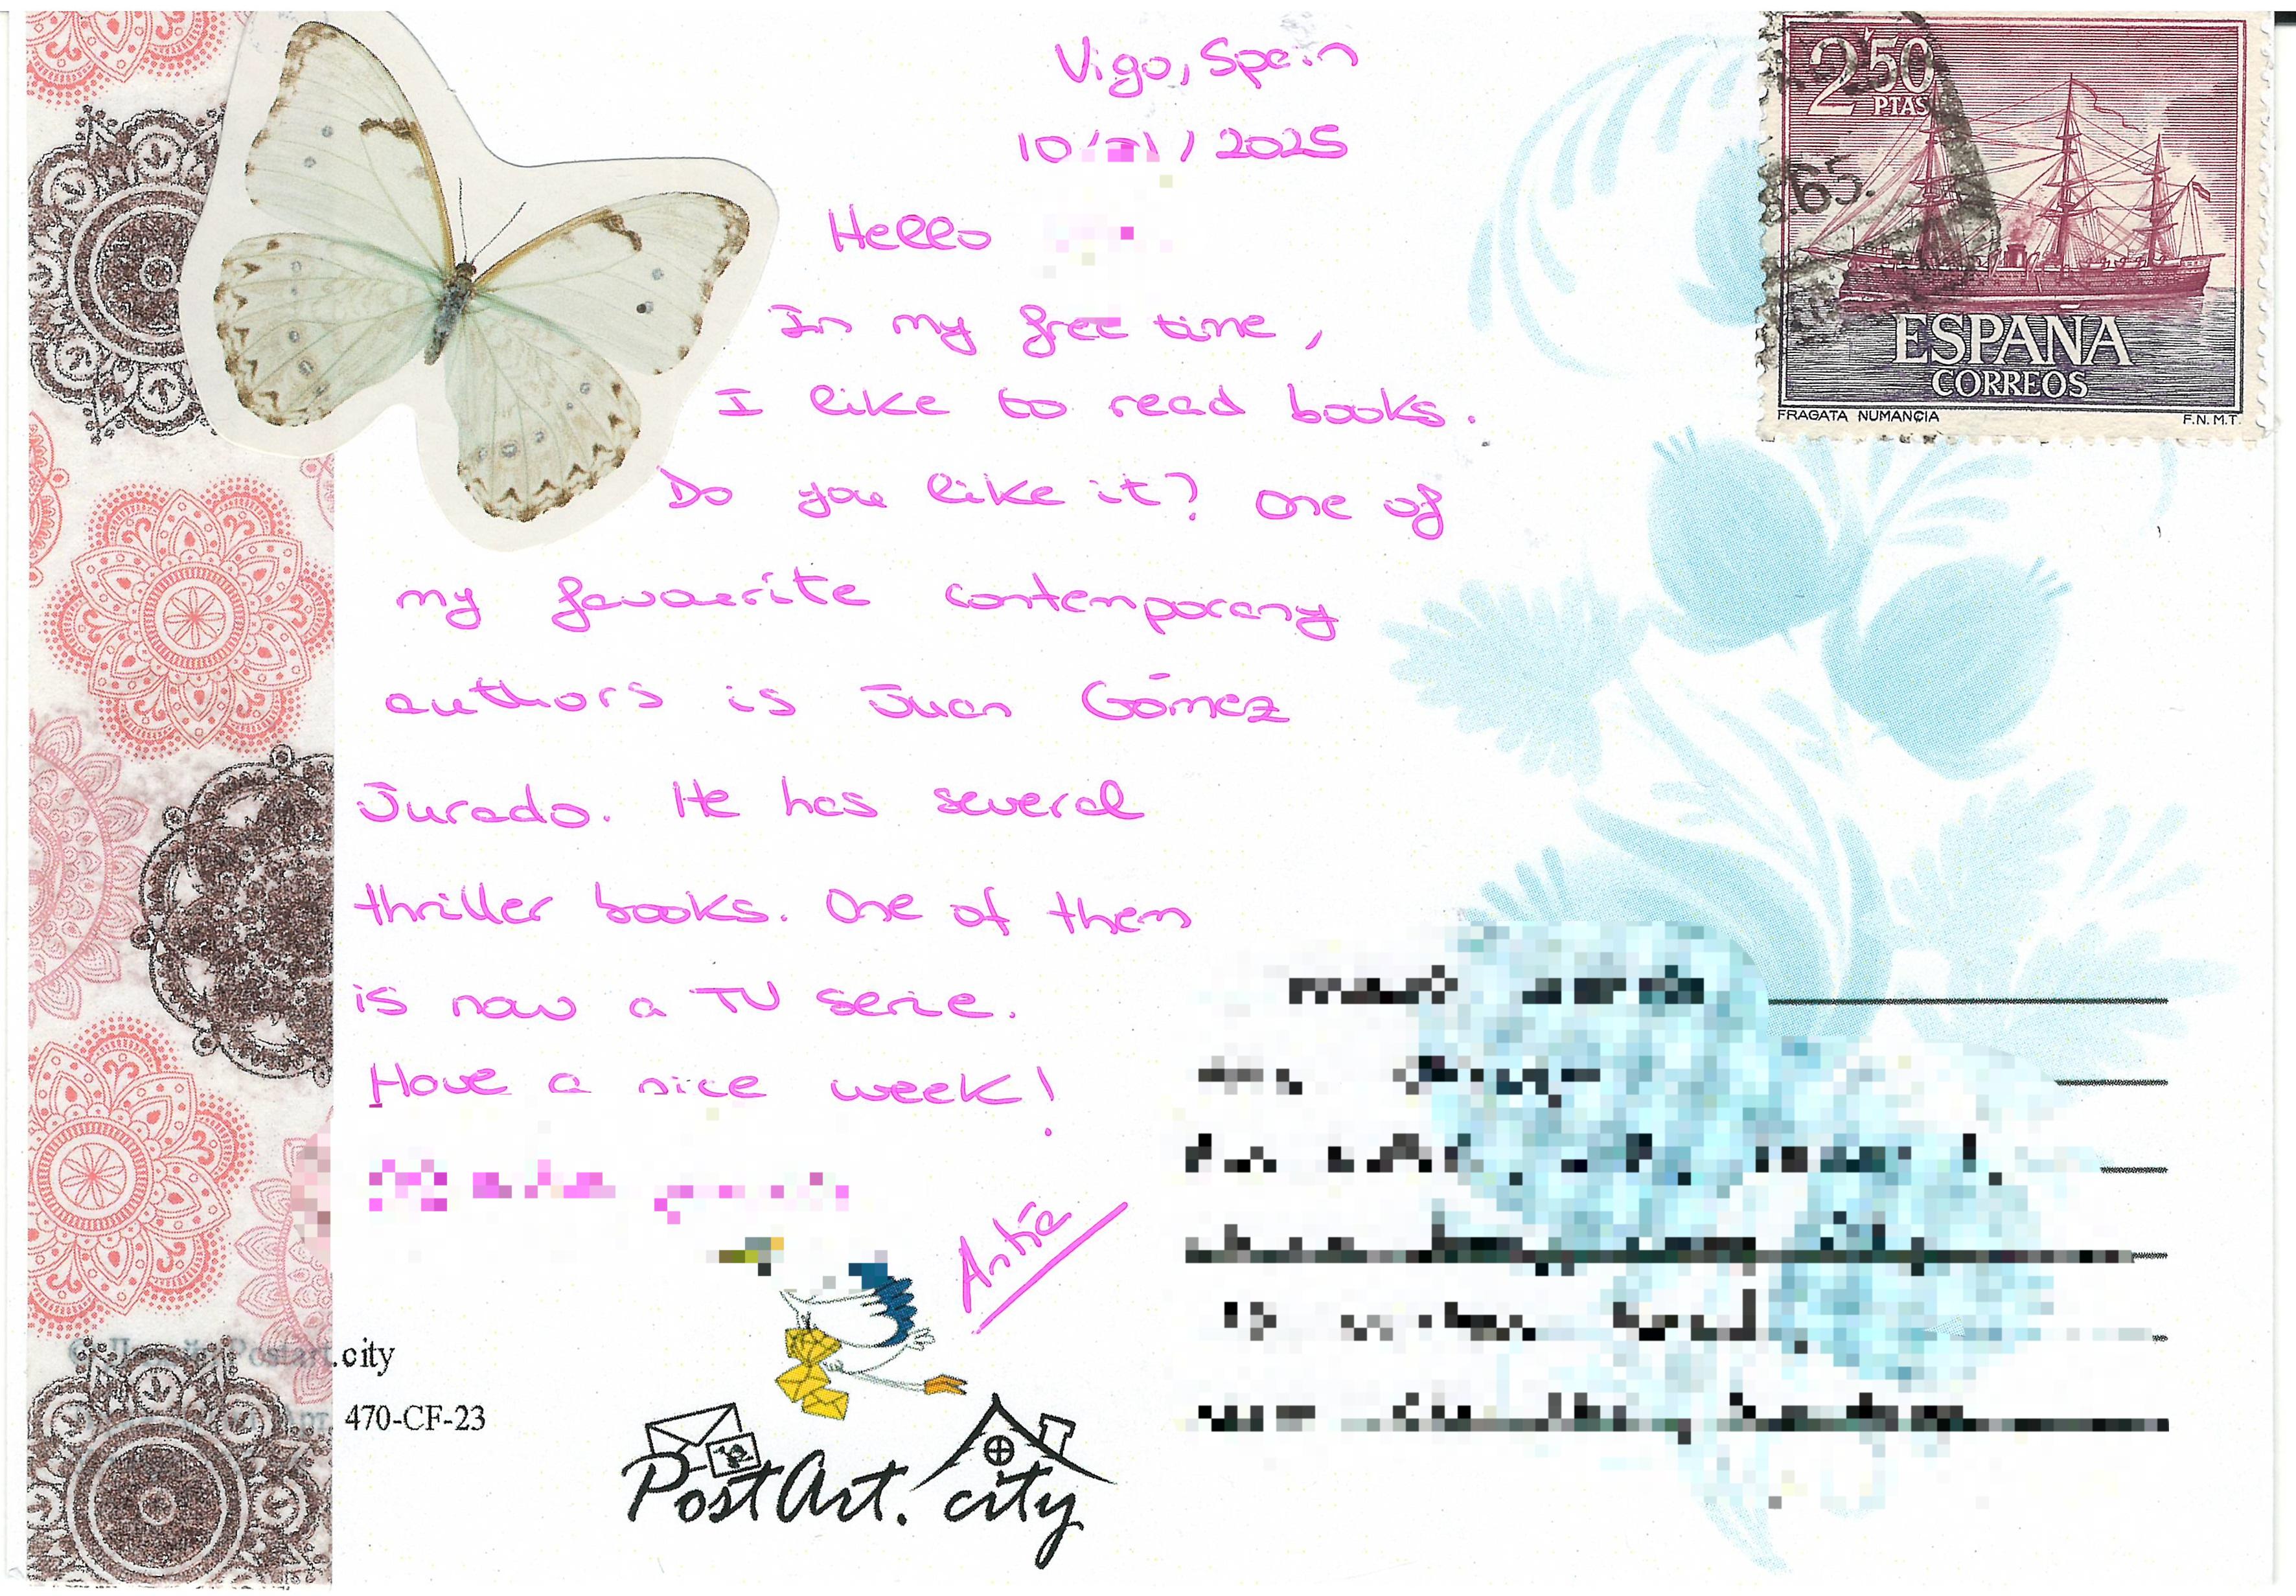 Vigo, Spain
10/ /2025
Hello
In my free time,
I like to read books.
Do you like it? One of
my favourite contemporany
authors is Juan Gómez
Jurado. He has several
thriller books. One of them
is now a TV serie.
Have a nice week!
Antía
2'50
PTAS
65.
ESPAÑA
CORREOS
FRAGATA NUMANCIA
F.N.M.T.
Postart.city
470-CF-23
PostArt.city